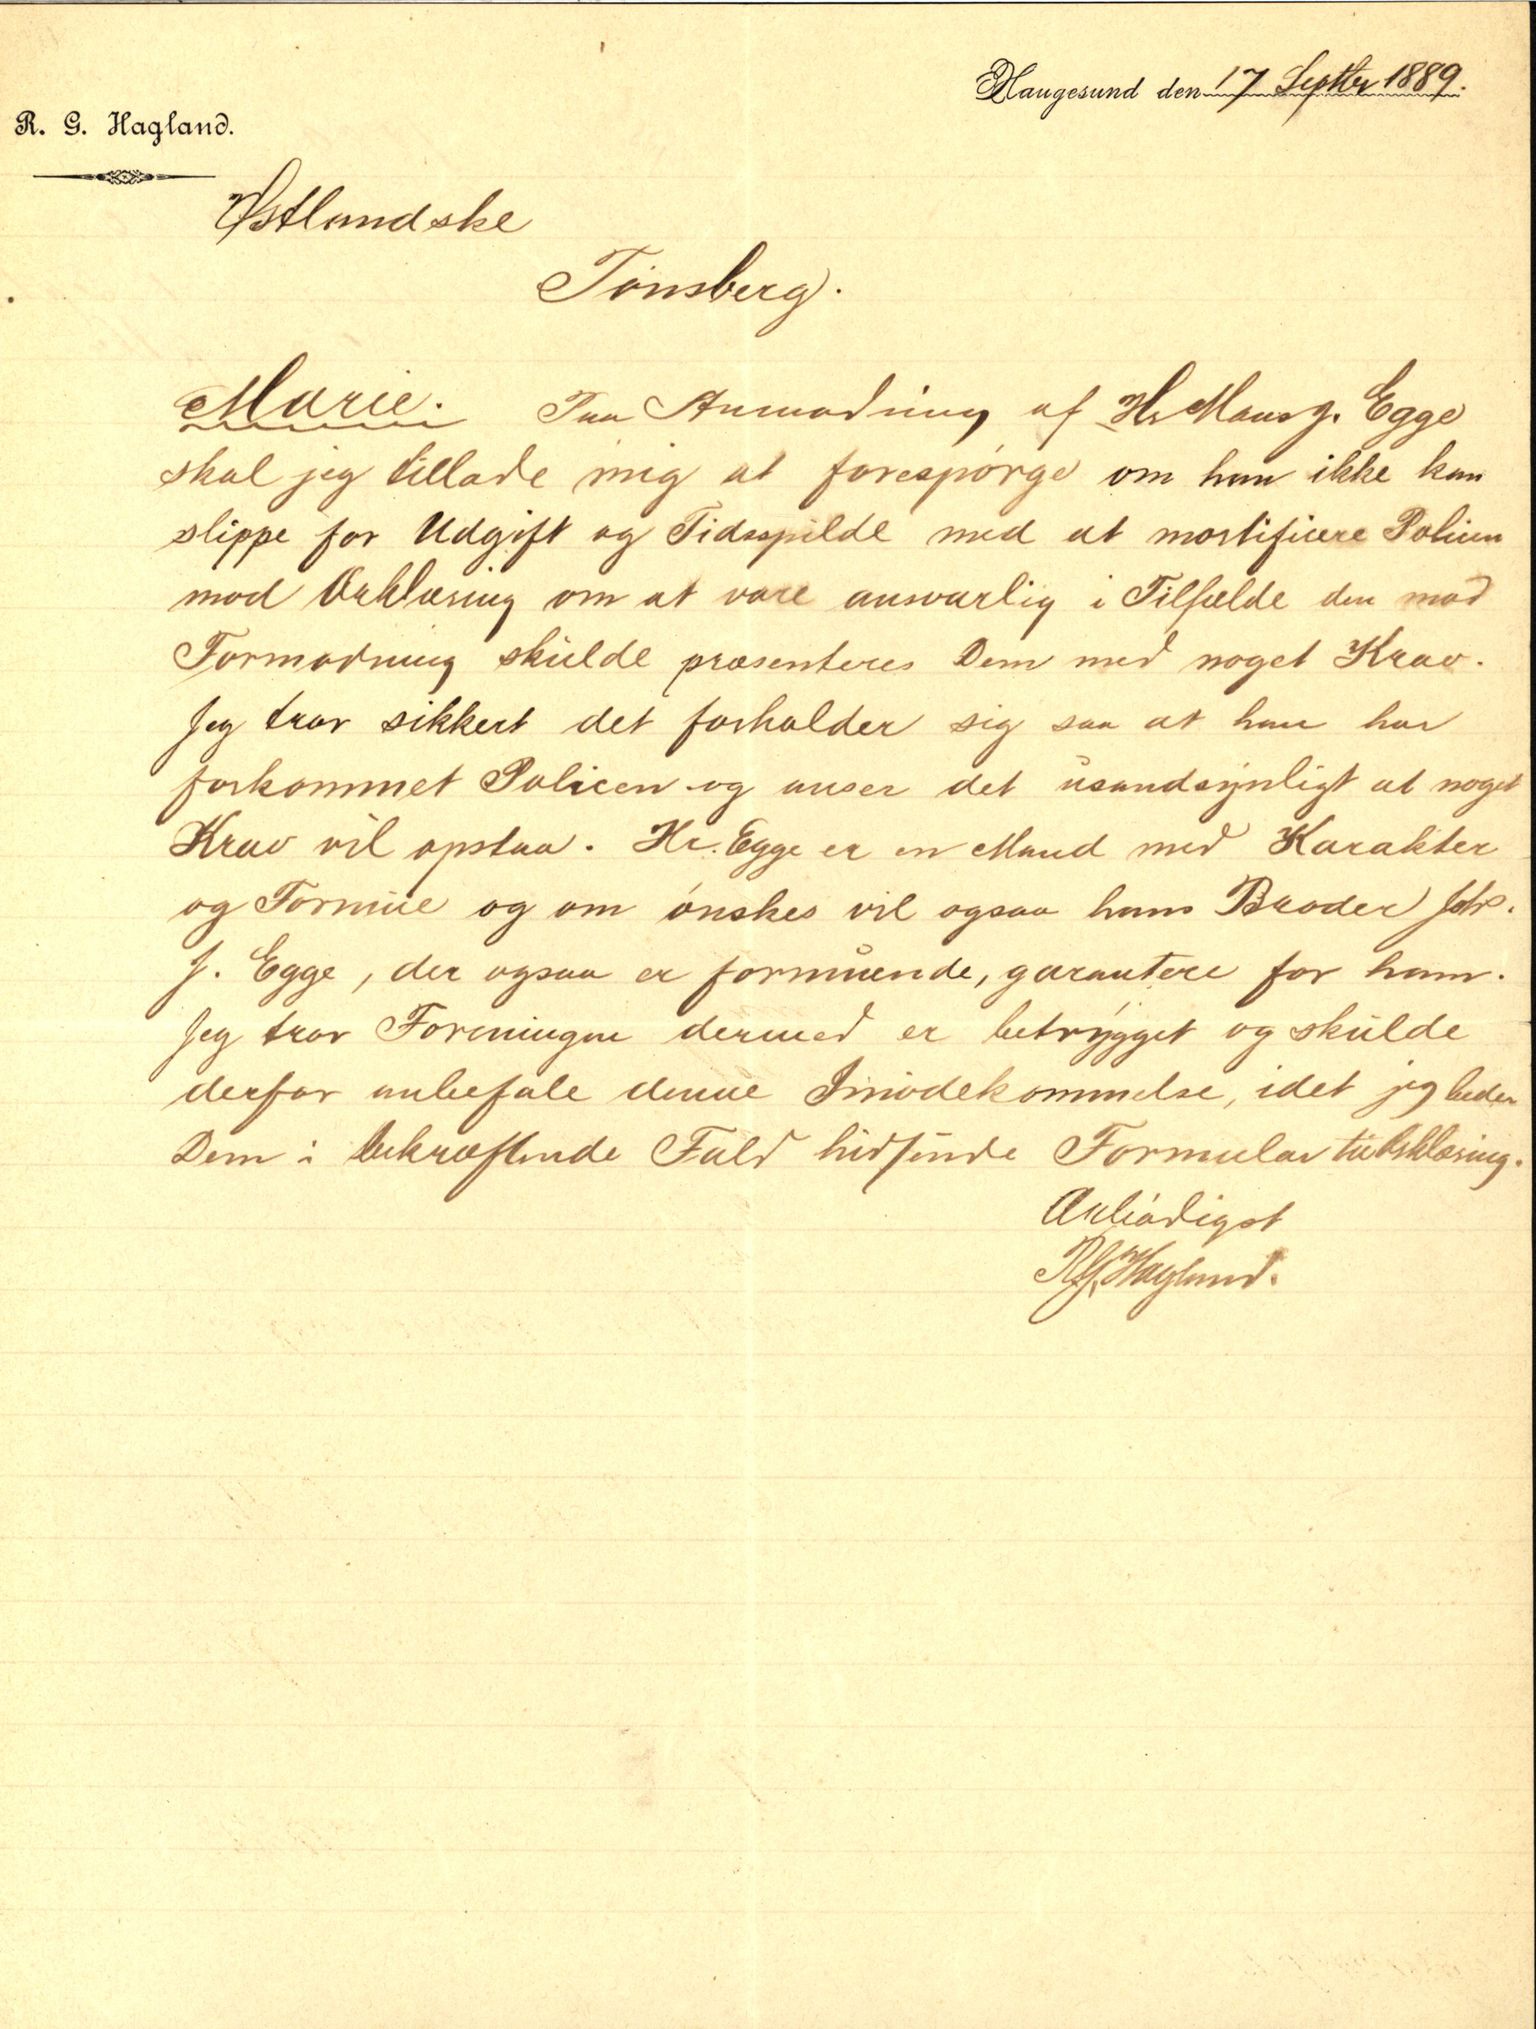 Haugesund den 17 Septbr 1889.
R. G. Hagland.
Østlandske
Tønsberg.
Marie. Paa Anmodning af Hr Mons J. Egge
skal jeg tillade mig at forespørge om han ikke kan
slippe for Udgift og Tidsspilde med at mortificere Policen
mod Erklæring om at være ansvarlig i Tilfælde den mod
Formodning skulde præsenteres Dem med noget Krav.
Jeg tror sikkert det forholder sig saa at han har
forkommet Policen og anser det usandsynligt at noget
Krav vil opstaa. Hr. Egge er en Mand med Karakter
og Formue og om ønskes vil ogsaa hans Broder Johs.
J. Egge, der ogsaa er formuende, garantere for ham.
Jeg tror Foreningen dermed er betrygget og skulde
derfor anbefale denne Imødekommelse, idet jeg beder
Dem i bekræftende Fald hidsende Formular til Erklæring.
Ærbødigst
R. G. Hagland.